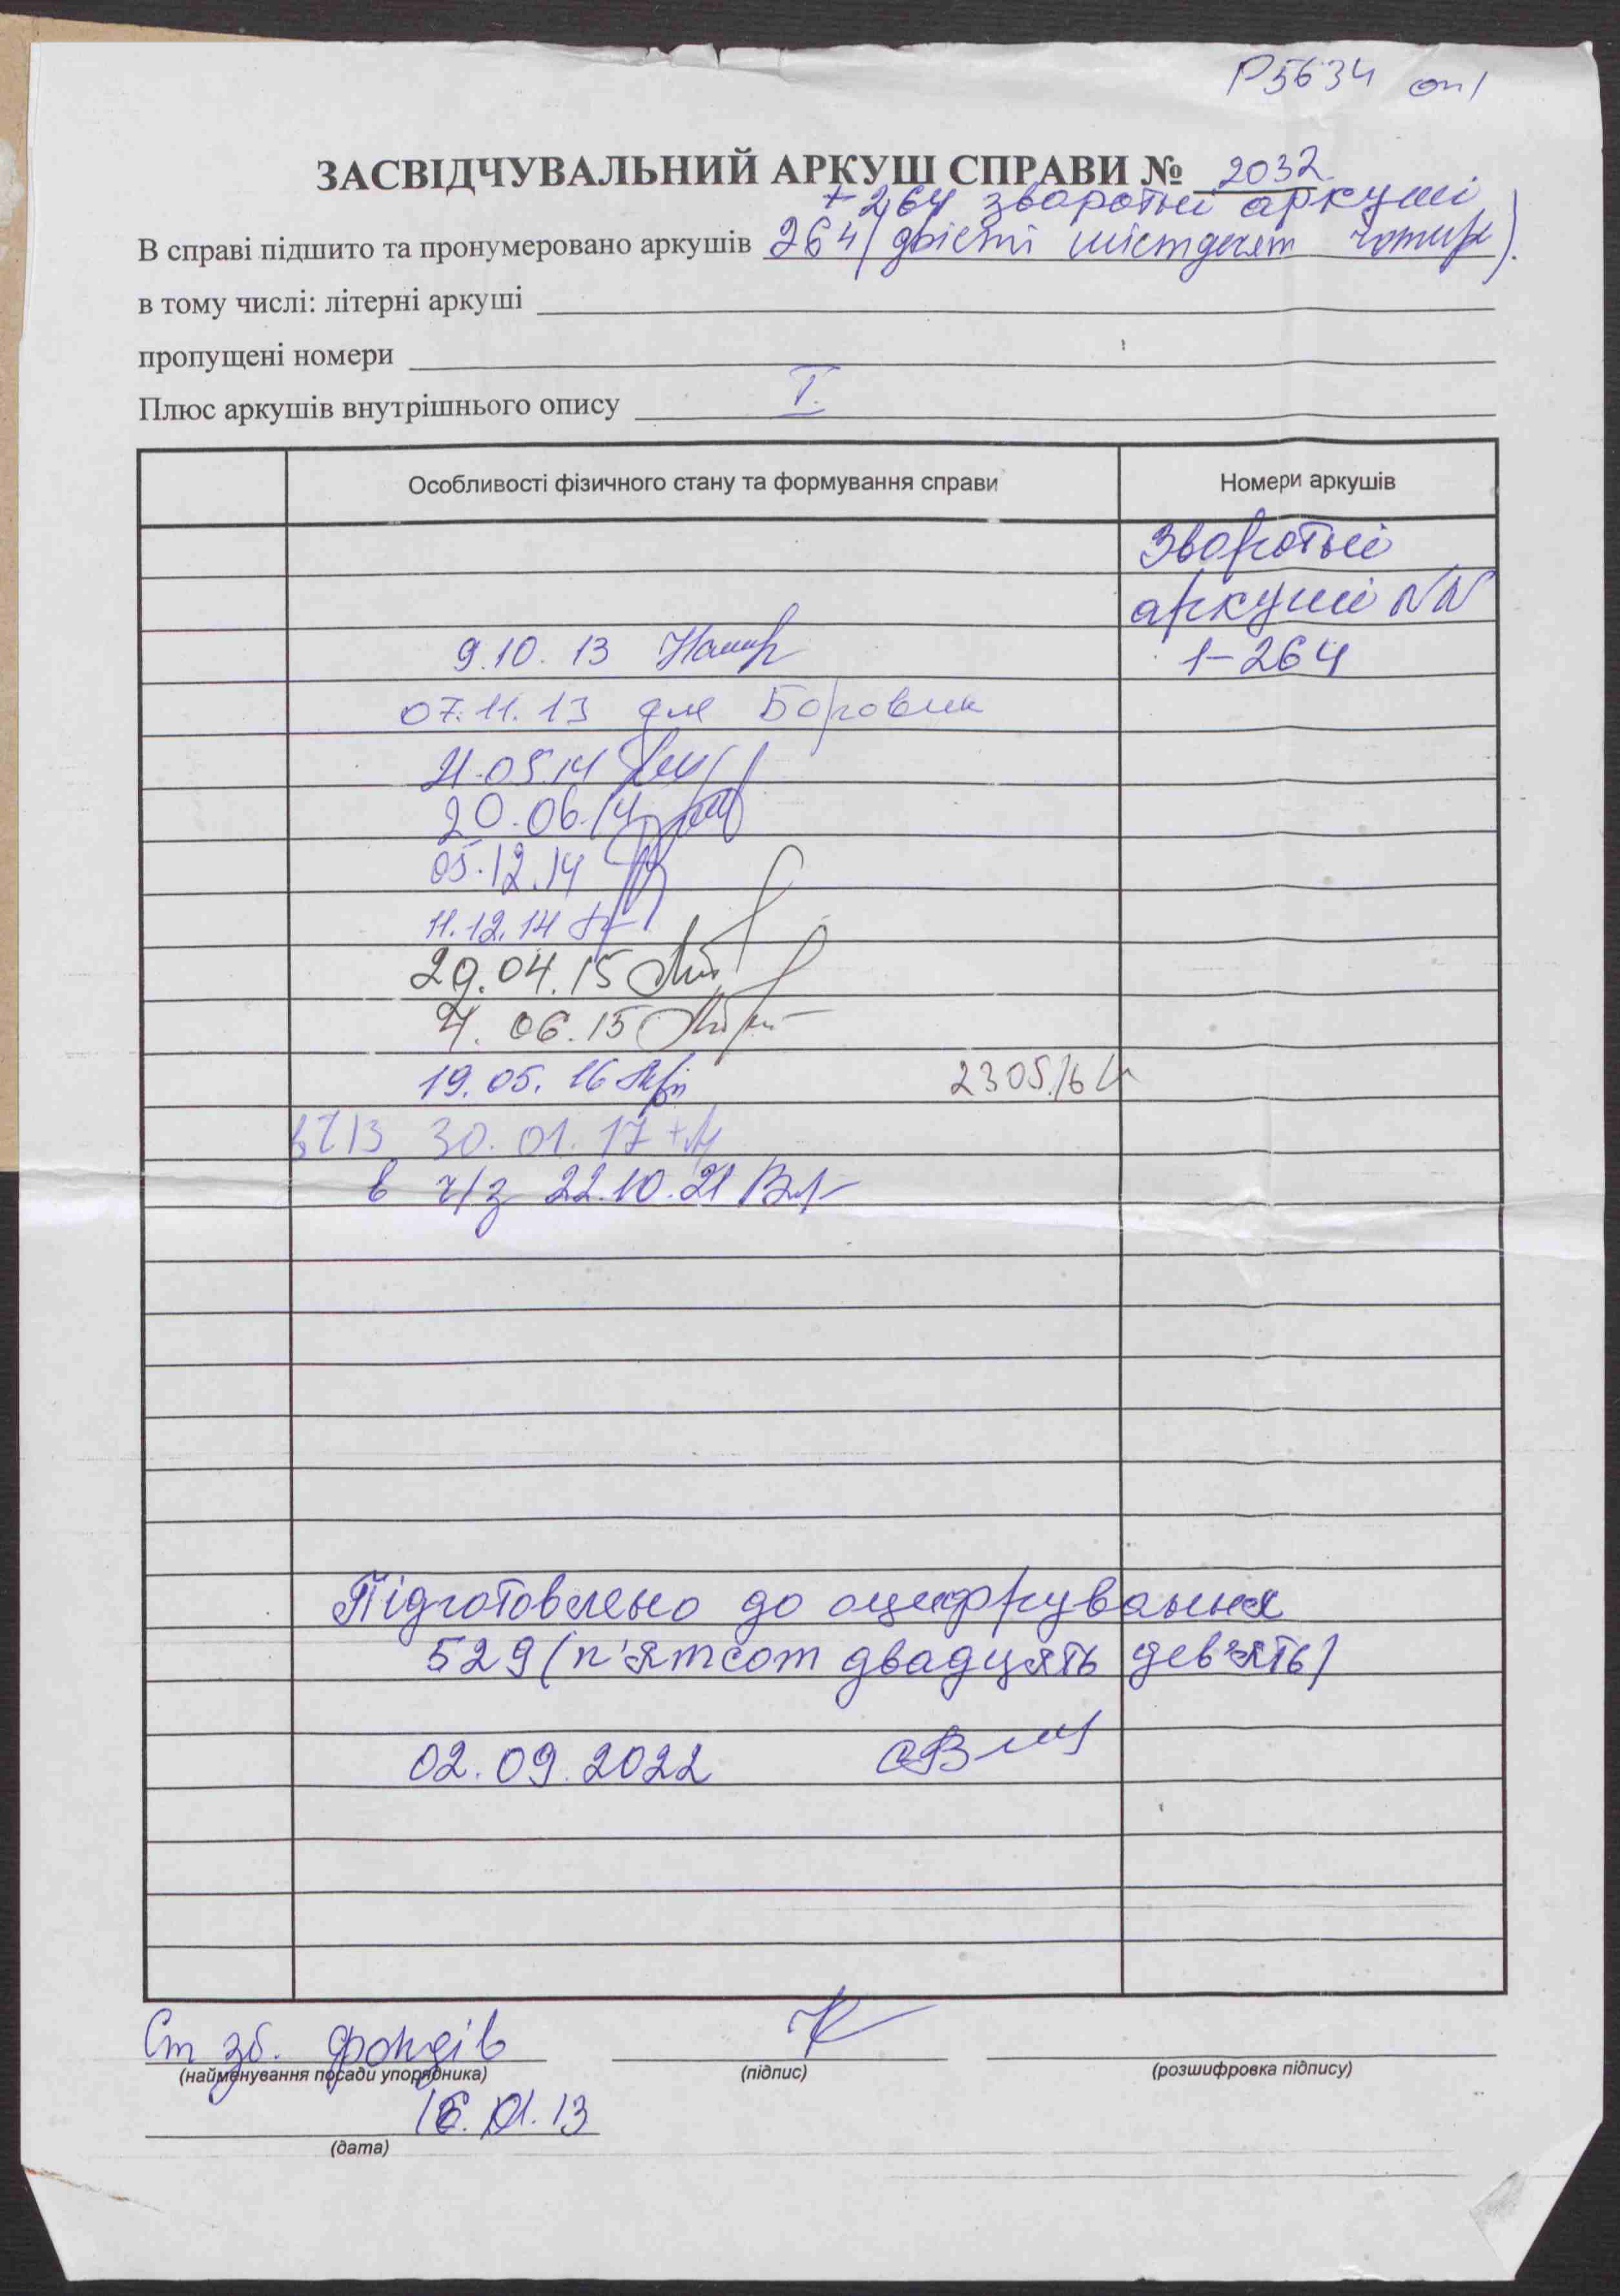 Р5634 оп1
ЗАСВІДЧУВАЛЬНИЙ АРКУШ СПРАВИ № 2032
+ 264 зворотні аркуші
В справі підшито та пронумеровано аркушів 264 (двісті шістдесят чотири).
в тому числі: літерні аркуші
пропущені номери
Плюс аркушів внутрішнього опису I.
Особливості фізичного стану та формування справи Номери аркушів
Зворотні
аркуші NN
9.10.13 1-264
07.11.13 для Боровик
21.05.14
20.06.14
05.12.14
11.12.14
29.04.15
4.06.15
19.05.16 23.05.16
30.01.17
в ч/з 22.10.21
Підготовлено до оцифрування
529 (п'ятсот двадцять дев'ять)
02.09.2022
Ст зб. фондів
(найменування посади упорядника) (підпис) (розшифровка підпису)
16.01.13
(дата)